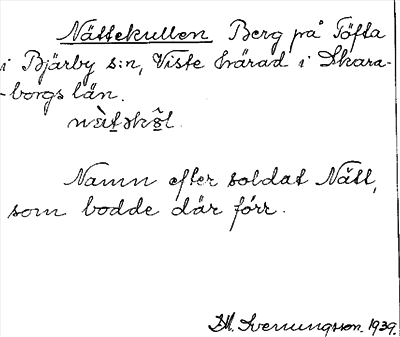 Nättekullen Berg på Töfta
i Bjärby s:n, Viste härad i Skara-
-borgs län.
Namn efter soldat Nätt,
som bodde där förr.
M. Svenungsson. 1939.